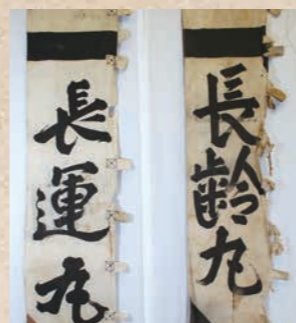 長運丸
長齢丸